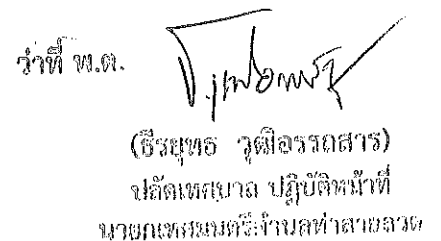 ว่าที่ พ.ต.
(ธีรยุทธ วุฒิอรรถสาร)
ปลัดเทศบาล ปฏิบัติหน้าที่
นายกเทศมนตรีตำบลท่าสายลวด